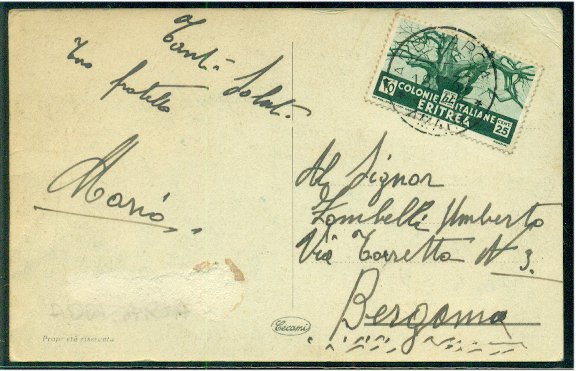 Tanti Saluti
Tuo fratello
Mario
COLONIE ITALIANE
ERITREA
CENT. 25
Al Signor
Zambelli Umberto
Via Torretta N 3.
Bergamo
Cecami
Proprietà riservata